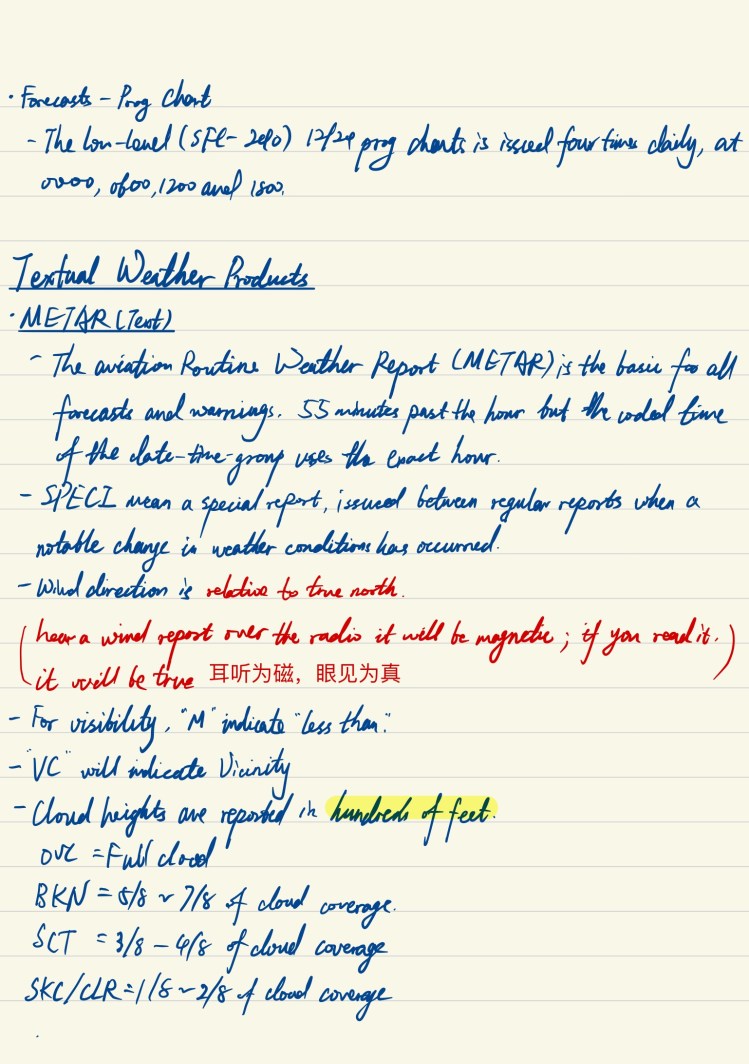 · Forecasts - Prog Chart
- The low-level (SFC- 240) 12/24 prog charts is issued four times daily, at
0000, 0600, 1200 and 1800.
Textual Weather Products
· METAR (Text)
- The aviation Routine Weather Report (METAR) is the basic for all
forecasts and warnings. 55 minutes past the hour but the coded time
of the date-time-group uses the exact hour.
- SPECI mean a special report, issued between regular reports when a
notable change in weather conditions has occurred.
- Wind direction is relative to true north.
(hear a wind report over the radio it will be magnetic; if you read it.
it will be true 耳听为磁，眼见为真)
- For visibility, "M" indicate "less than."
- "VC" will indicate Vicinity
- Cloud heights are reported in hundreds of feet.
OVC = Full cloud
BKN = 5/8 ~ 7/8 of cloud coverage.
SCT = 3/8 - 4/8 of cloud coverage
SKC/CLR = 1/8 ~ 2/8 of cloud coverage